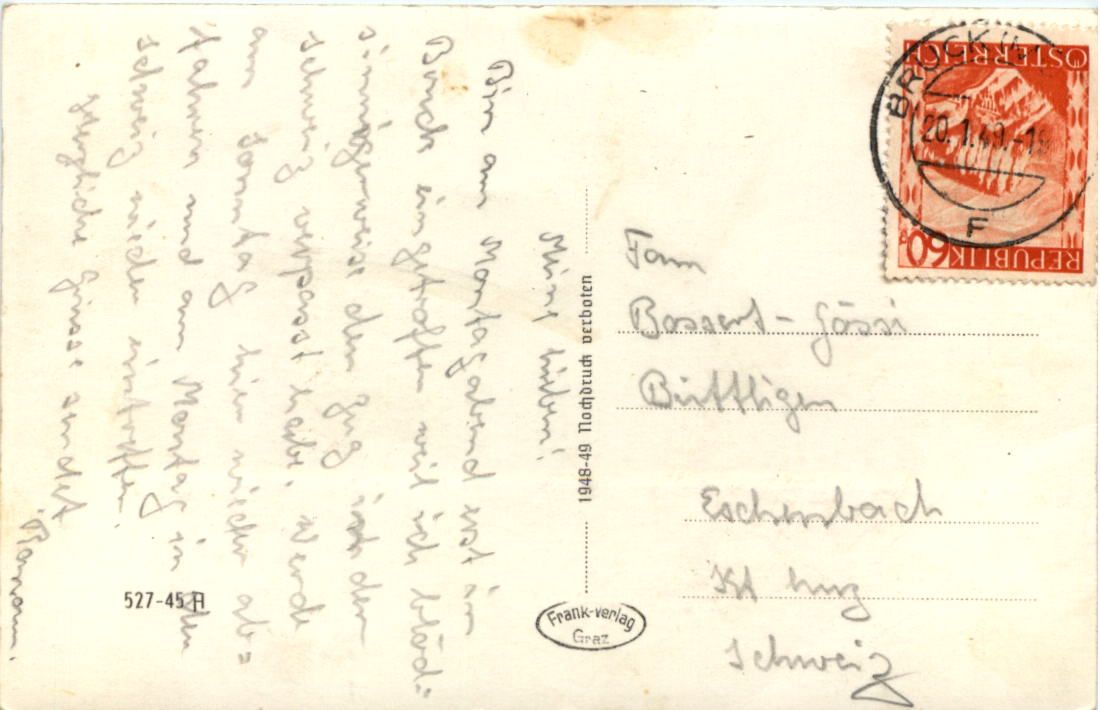 Meine Lieben!
Bin am Montagabend erst in
Bruck eingetroffen weil ich blöd=
sinnigerweise den Zug in der
Schweiz verpasst habe. Werde
am Sonntag hier wieder ab=
fahren und am Montag in der
Schweiz wieder eintreffen.
Herzliche Grüsse sendet
1948-49 Nachdruck verboten
527-45 A
Frank-Verlag
Graz
Fam
Bossert-Gössi
Eschenbach
Kt Luz
Schweiz
BRUCK
20.1.49.-18
F
ÖSTERREICH
60
REPUBLIK